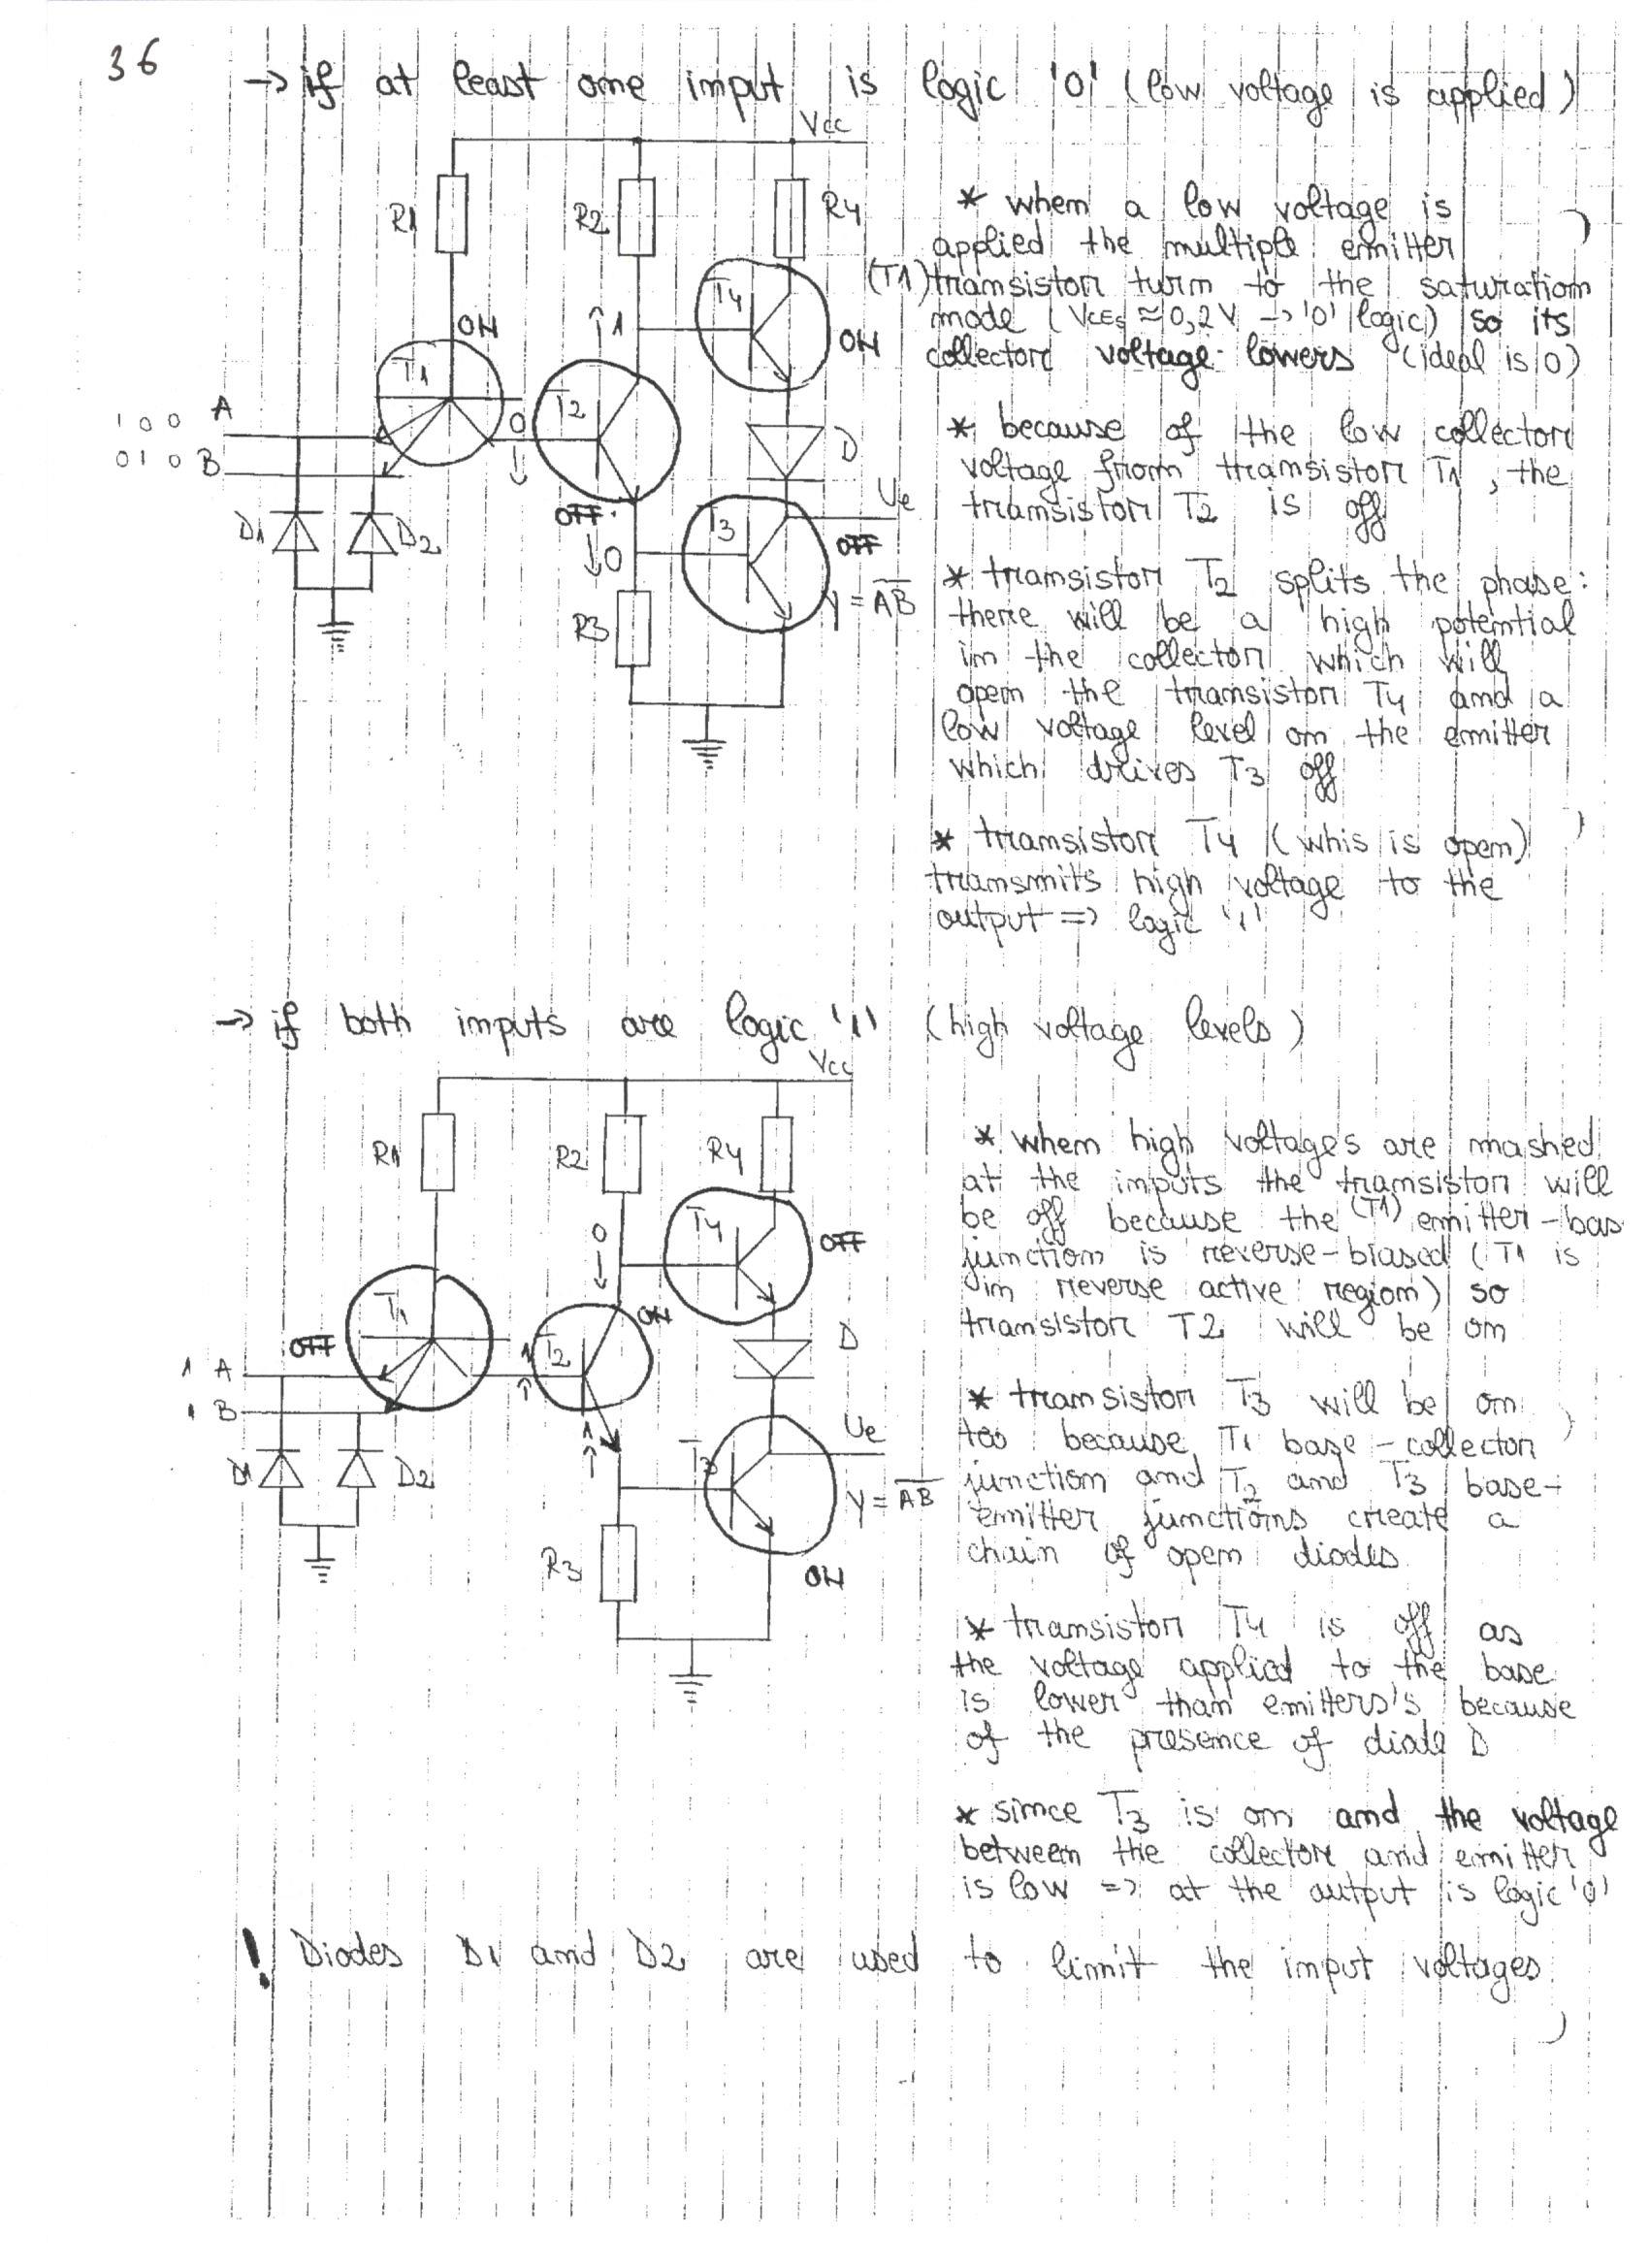 36
→ if at least one input is logic '0' (low voltage is applied)
Vcc
R1
R2
R4
* when a low voltage is
applied the multiple emitter
(T1) transistor turn to the saturation
mode (VCEs ≈ 0,2 V → '0' logic) so its
collector voltage lowers (ideal is 0)
T4
ON
↑1
ON
T1
T2
1 0 0 A
0 1 0 B
0
↓
D
* because of the low collector
voltage from transistor T1, the
transistor T2 is off
Ue
OFF
T3
OFF
D1
D2
↓0
y = A̅B̅
R3
* transistor T2 splits the phase:
there will be a high potential
in the collector which will
open the transistor T4 and a
low voltage level on the emitter
which drives T3 off
* transistor T4 (whis is open)
transmits high voltage to the
output => logic '1'
→ if both inputs are logic '1' (high voltage levels)
Vcc
R1
R2
R4
* when high voltages are mashed
at the inputs the transistor will
be off because the (T1) emitter-bas
junction is reverse-biased (T1 is
in reverse active region) so
transistor T2 will be on
T4
OFF
0
↓
T1
ON
OFF
T2
D
1 A
1 B
1
↑
1
↑
* transistor T3 will be on
too because T1 base-collector
junction and T2 and T3 base-
emitter junctions create a
chain of open diodes
Ue
T3
D1
D2
y = A̅B̅
R3
ON
* transistor T4 is off as
the voltage applied to the base
is lower than emitters's because
of the presence of diode D
* since T3 is on and the voltage
between the collector and emitter
is low => at the output is logic '0'
! Diodes D1 and D2 are used to limit the input voltages